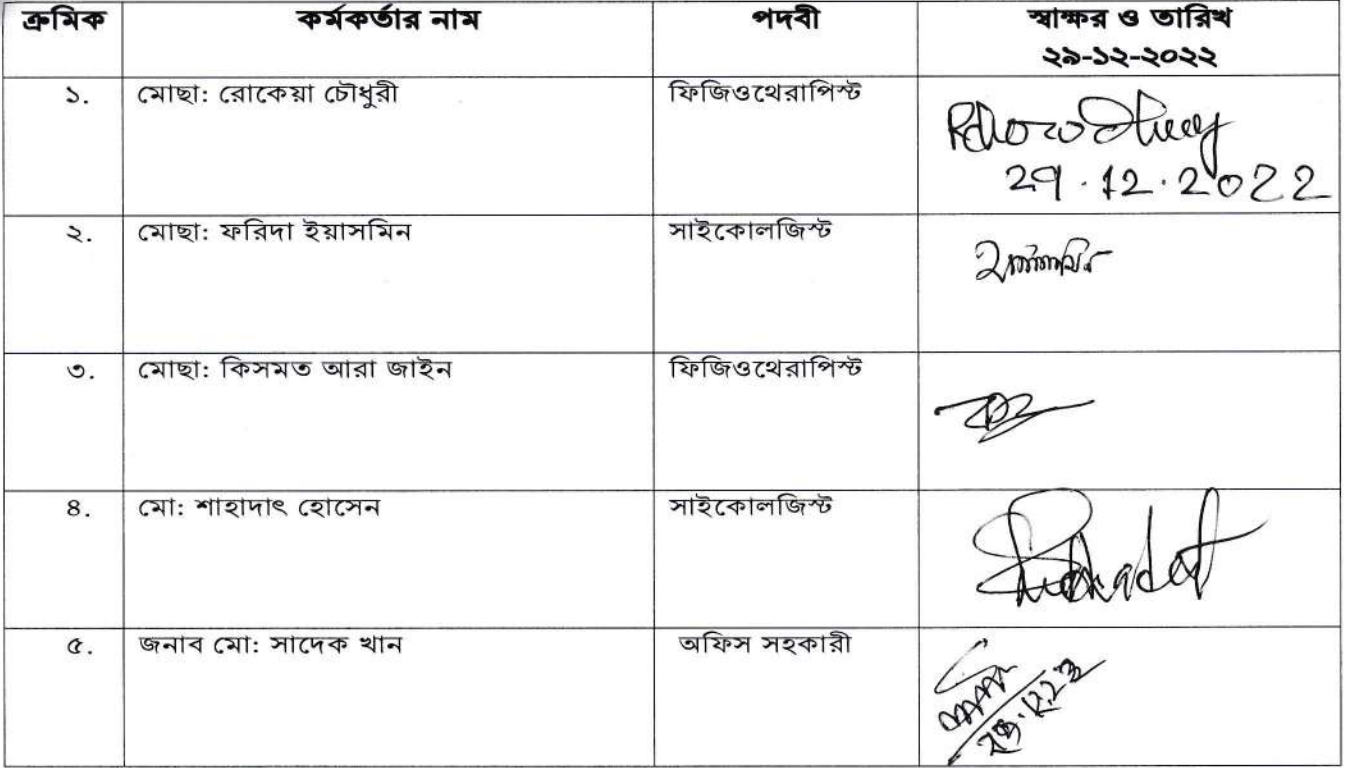 ক্রমিক কর্মকর্তার নাম পদবী স্বাক্ষর ও তারিখ
২৯-১২-২০২২
১. মোছা: রোকেয়া চৌধুরী ফিজিওথেরাপিস্ট
29.12.2022
২. মোছা: ফরিদা ইয়াসমিন সাইকোলজিস্ট
৩. মোছা: কিসমত আরা জাইন ফিজিওথেরাপিস্ট
৪. মো: শাহাদাৎ হোসেন সাইকোলজিস্ট
৫. জনাব মো: সাদেক খান অফিস সহকারী